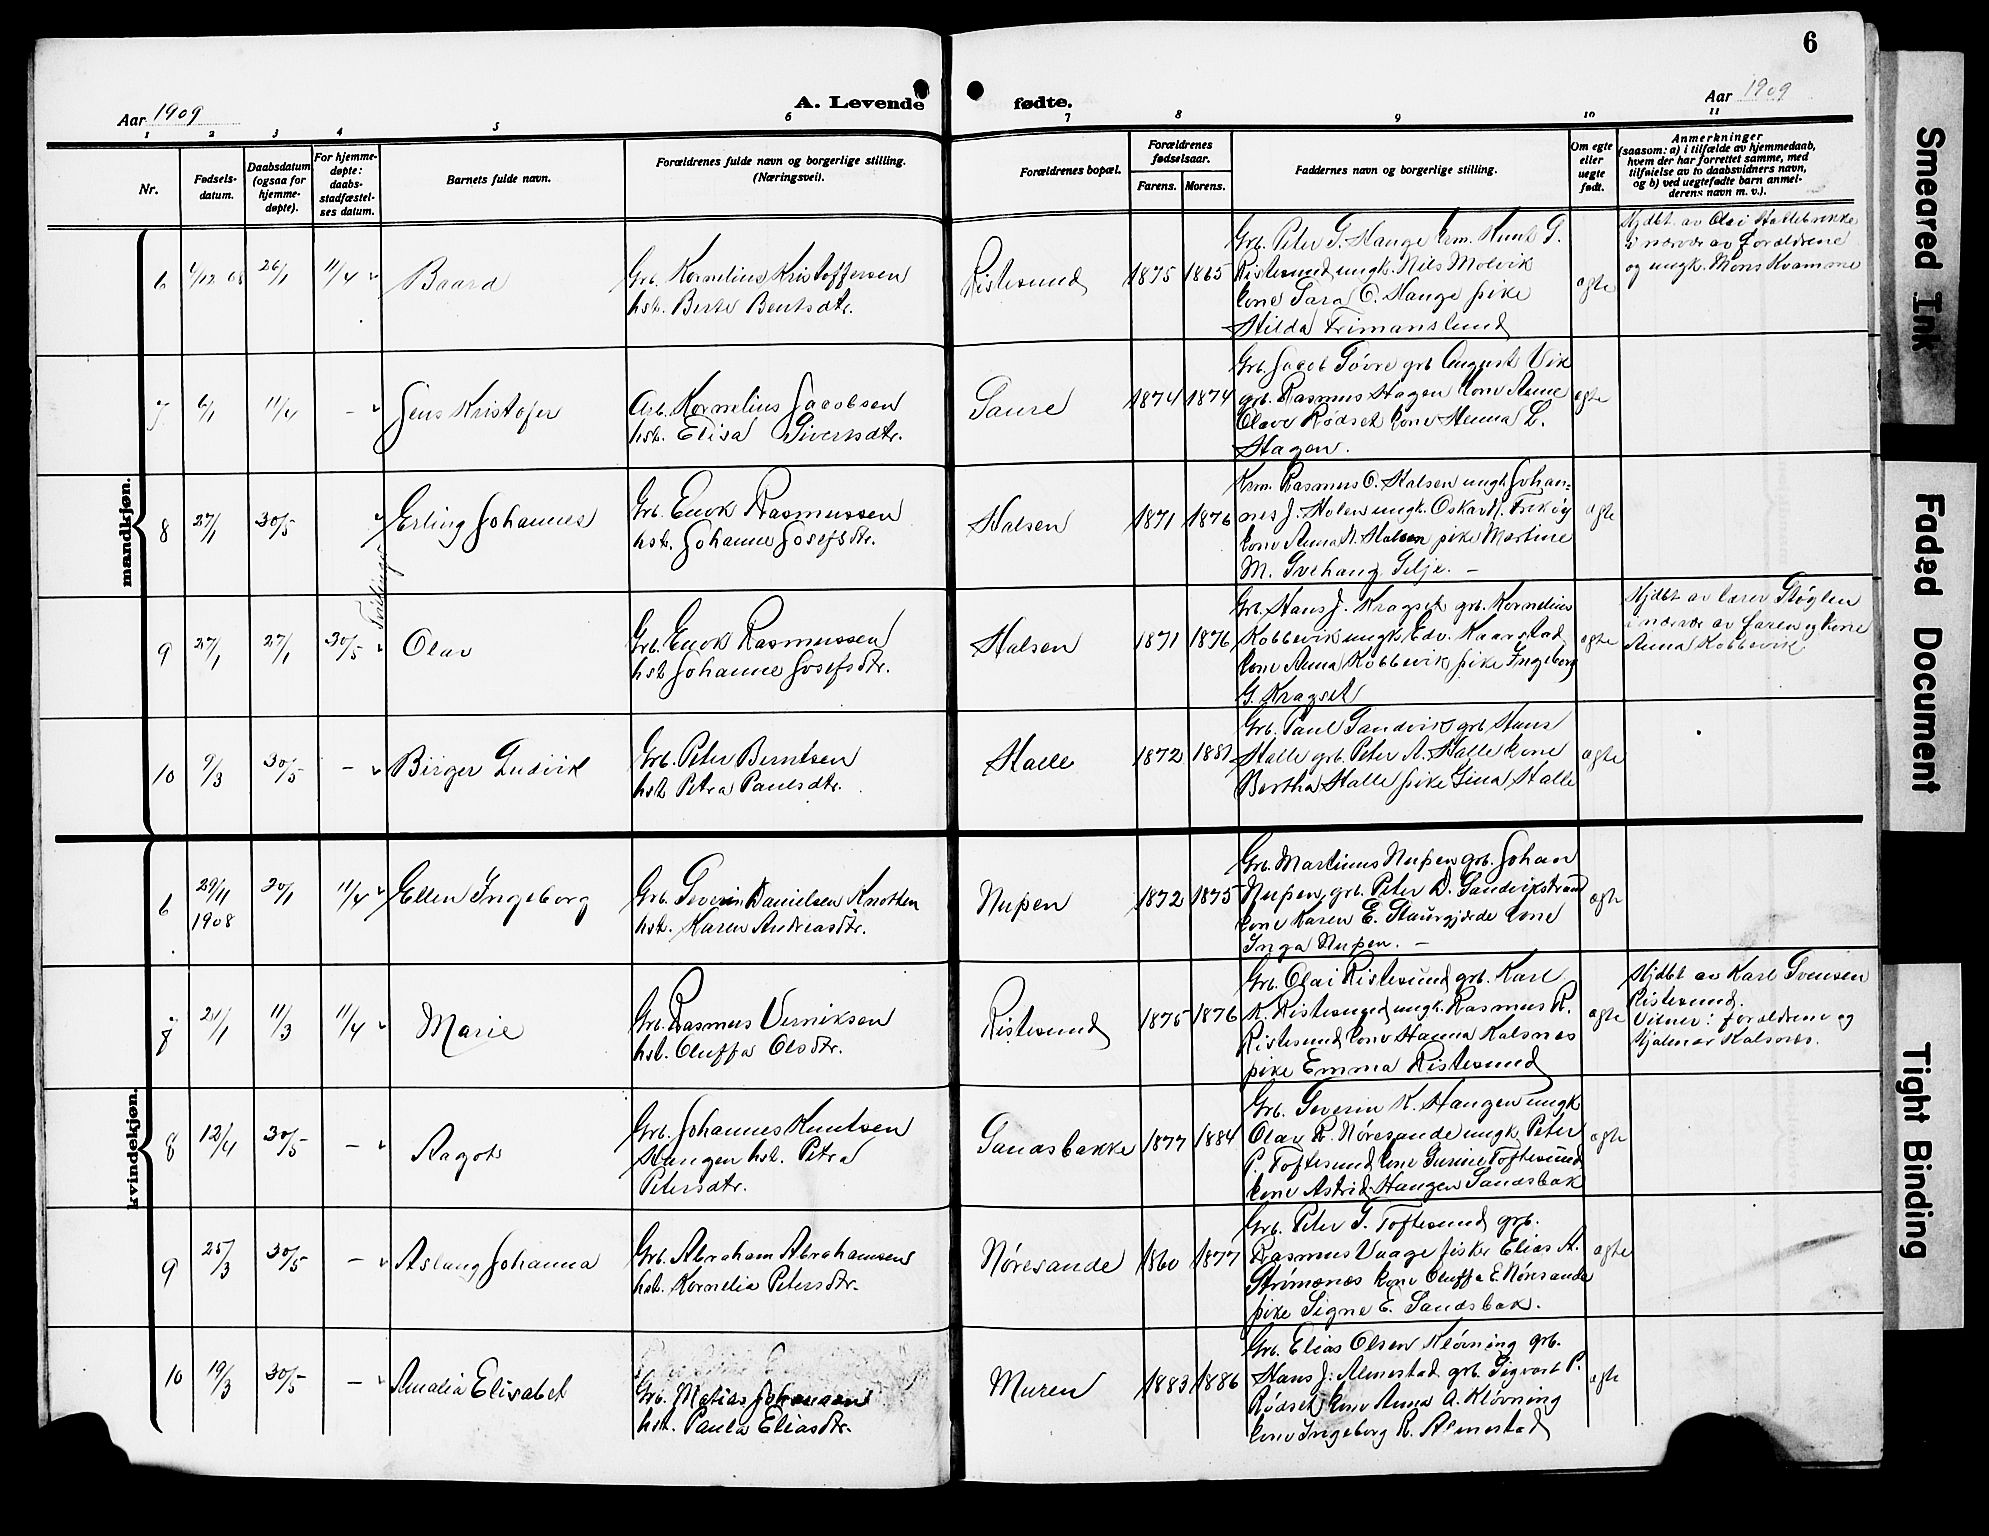 6
Aar 1909
A. Levende fødte.
Aar 1909
1 2 3 4 5 6 7 8 9 10 11
Nr.
Fødsels-
datum.
Daabsdatum
(ogsaa for
hjemme-
døpte).
For hjemme-
døpte:
daabs-
stadfæstel-
ses datum.
Barnets fulde navn.
Forældrenes fulde navn og borgerlige stilling.
(Næringsvei).
Forældrenes bopæl.
Forældrenes
fødselsaar.
Farens. Morens.
Faddernes navn og borgerlige stilling.
Om egte
eller
uegte
født.
Anmerkninger
(saasom: a) i tilfælde av hjemmedaab,
hvem der har forrettet samme, med
tilføielse av to daabsvidners navn,
og b) ved uegtefødte barn anmel-
derens navn m. v.).
mandkjøn.
6 4/12 08 26/1 11/4 Baard
Grb. Kornelius Kristoffersen
hst. Berte Bentsdtr.
Ristesund 1875 1865
Grb. Peter G. Hauge krm. Knut G.
Ristesund ungk. Nils Molvik
kone Sara O. Hauge pike
Hilda Frimanslund
egte
Hjdbt. av Olai Hallebrekke
i nærv. av forældrene
og ungk. Mons Kvamme
7 6/1 11/4 — Jens Kristofer
Arb. Kornelius Jacobsen
hst. Elisa Sivertsdtr.
Saure 1874 1874
Grb. Jacob Tøvre grb August Vik
grb. Rasmus Hagen kone Anne
Olave Rødset kone Henna L.
Hagen.
egte
8 27/1 30/5 Erling Johannes
Grb. Enok Rasmussen
hst. Johanne Josefsdtr.
Halsen 1871 1876
Krm. Rasmus O. Halsen ungk Johan=
nes J. Holen ungk. Oskar J. Frikøy
kone Anna R. Halsen pike Martine
M. Svehaug Silje. —
egte
Tvillinger
9 27/1 27/1 30/5 Olav
Grb. Enok Rasmussen
hst Johanne Josefsdtr.
Halsen 1871 1876
Grb. Hans J. Kragset grb. Kornelius
Kobbevik ungk. Edv. Kaarstad
kone Anna Kobbevik pike Ingeborg
G. Kragset
egte
Hjdbt av lærer Støylen
i nærv. av faren og kone
Anna Kobbevik
10 9/3 30/5 — Birger Ludvik
Grb. Peter Berntsen
hst Petra Paulsdtr.
Halle 1872 1881
Grb. Paul Sandvik grb Hans
Halle grb. Peter A. Halle kone
Bertha Halle pike Gina Halle
egte
kvindekjøn.
6 29/11 1908 20/1 11/4 Ellen Ingeborg
Grb. Severin Danielsen Knotten
hst. Karen Andreasdtr.
Nupen 1872 1875
Grb. Martinus Nupen grb. Johan
Nupen, grb. Peter D. Sandvikstrand
kone Karen E. Staurgjerde kone
Inga Nupen. —
egte
7 21/1 11/3 11/4 Marie
Grb. Rasmus Verniksen
hst. Oluffa Olsdtr.
Ristesund 1875 1876
Grb. Olai Ristesund grb. Karl
K. Ristesund ungk. Rasmus R.
Ristesund kone Hanna Kalsnes
pike Emma Ristesund
egte
Hjdbt av Karl Svensen
Ristesund.
Vitner: forældrene og
Hjalmar Kalsnes.
8 12/4 30/5 — Aagot
Grb. Johannes Knutsen
Haugen hst. Petra
Petersdtr.
Sandsbakke 1877 1884
Grb. Severin K. Haugen ungk
Olav R. Nøresande ungk. Peter
P. Toftesund kone Gurine Toftesund
kone Astrid Haugen Sandsbak
egte
9 25/3 30/5 — Aslaug Johanna
Grb. Abraham Abrahamsen
hst. Kornelia Petersdtr.
Nøresande 1860 1877
Grb. Peter J. Toftesund grb.
Rasmus Vaage fisker Elias A.
Strømsnes kone Oluffa E. Nøresande
pike Signe E. Sandsbak.
egte
10 19/3 30/5 — Amalia Elisabet
Grb. Matias Johansen
hst. Paula Eliasdtr.
Muren 1883 1886
Grb. Elias Olsen Kløvning grb.
Hans J. Almestad grb. Sigvart P.
Rødset kone Anna A. Kløvning
kone Ingeborg R. Almestad
egte
Smeared Ink
Faded Document
Tight Binding